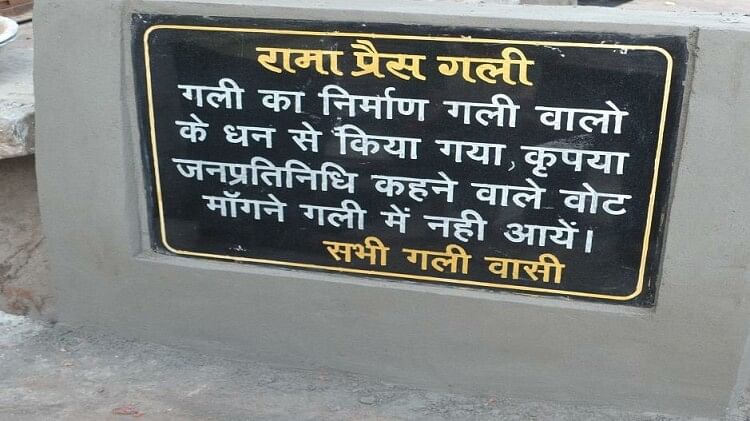 रामा प्रैस गली
गली का निर्माण गली वालो
के धन से किया गया, कृपया
जनप्रतिनिधि कहने वाले वोट
माँगने गली में नही आयें।
सभी गली वासी